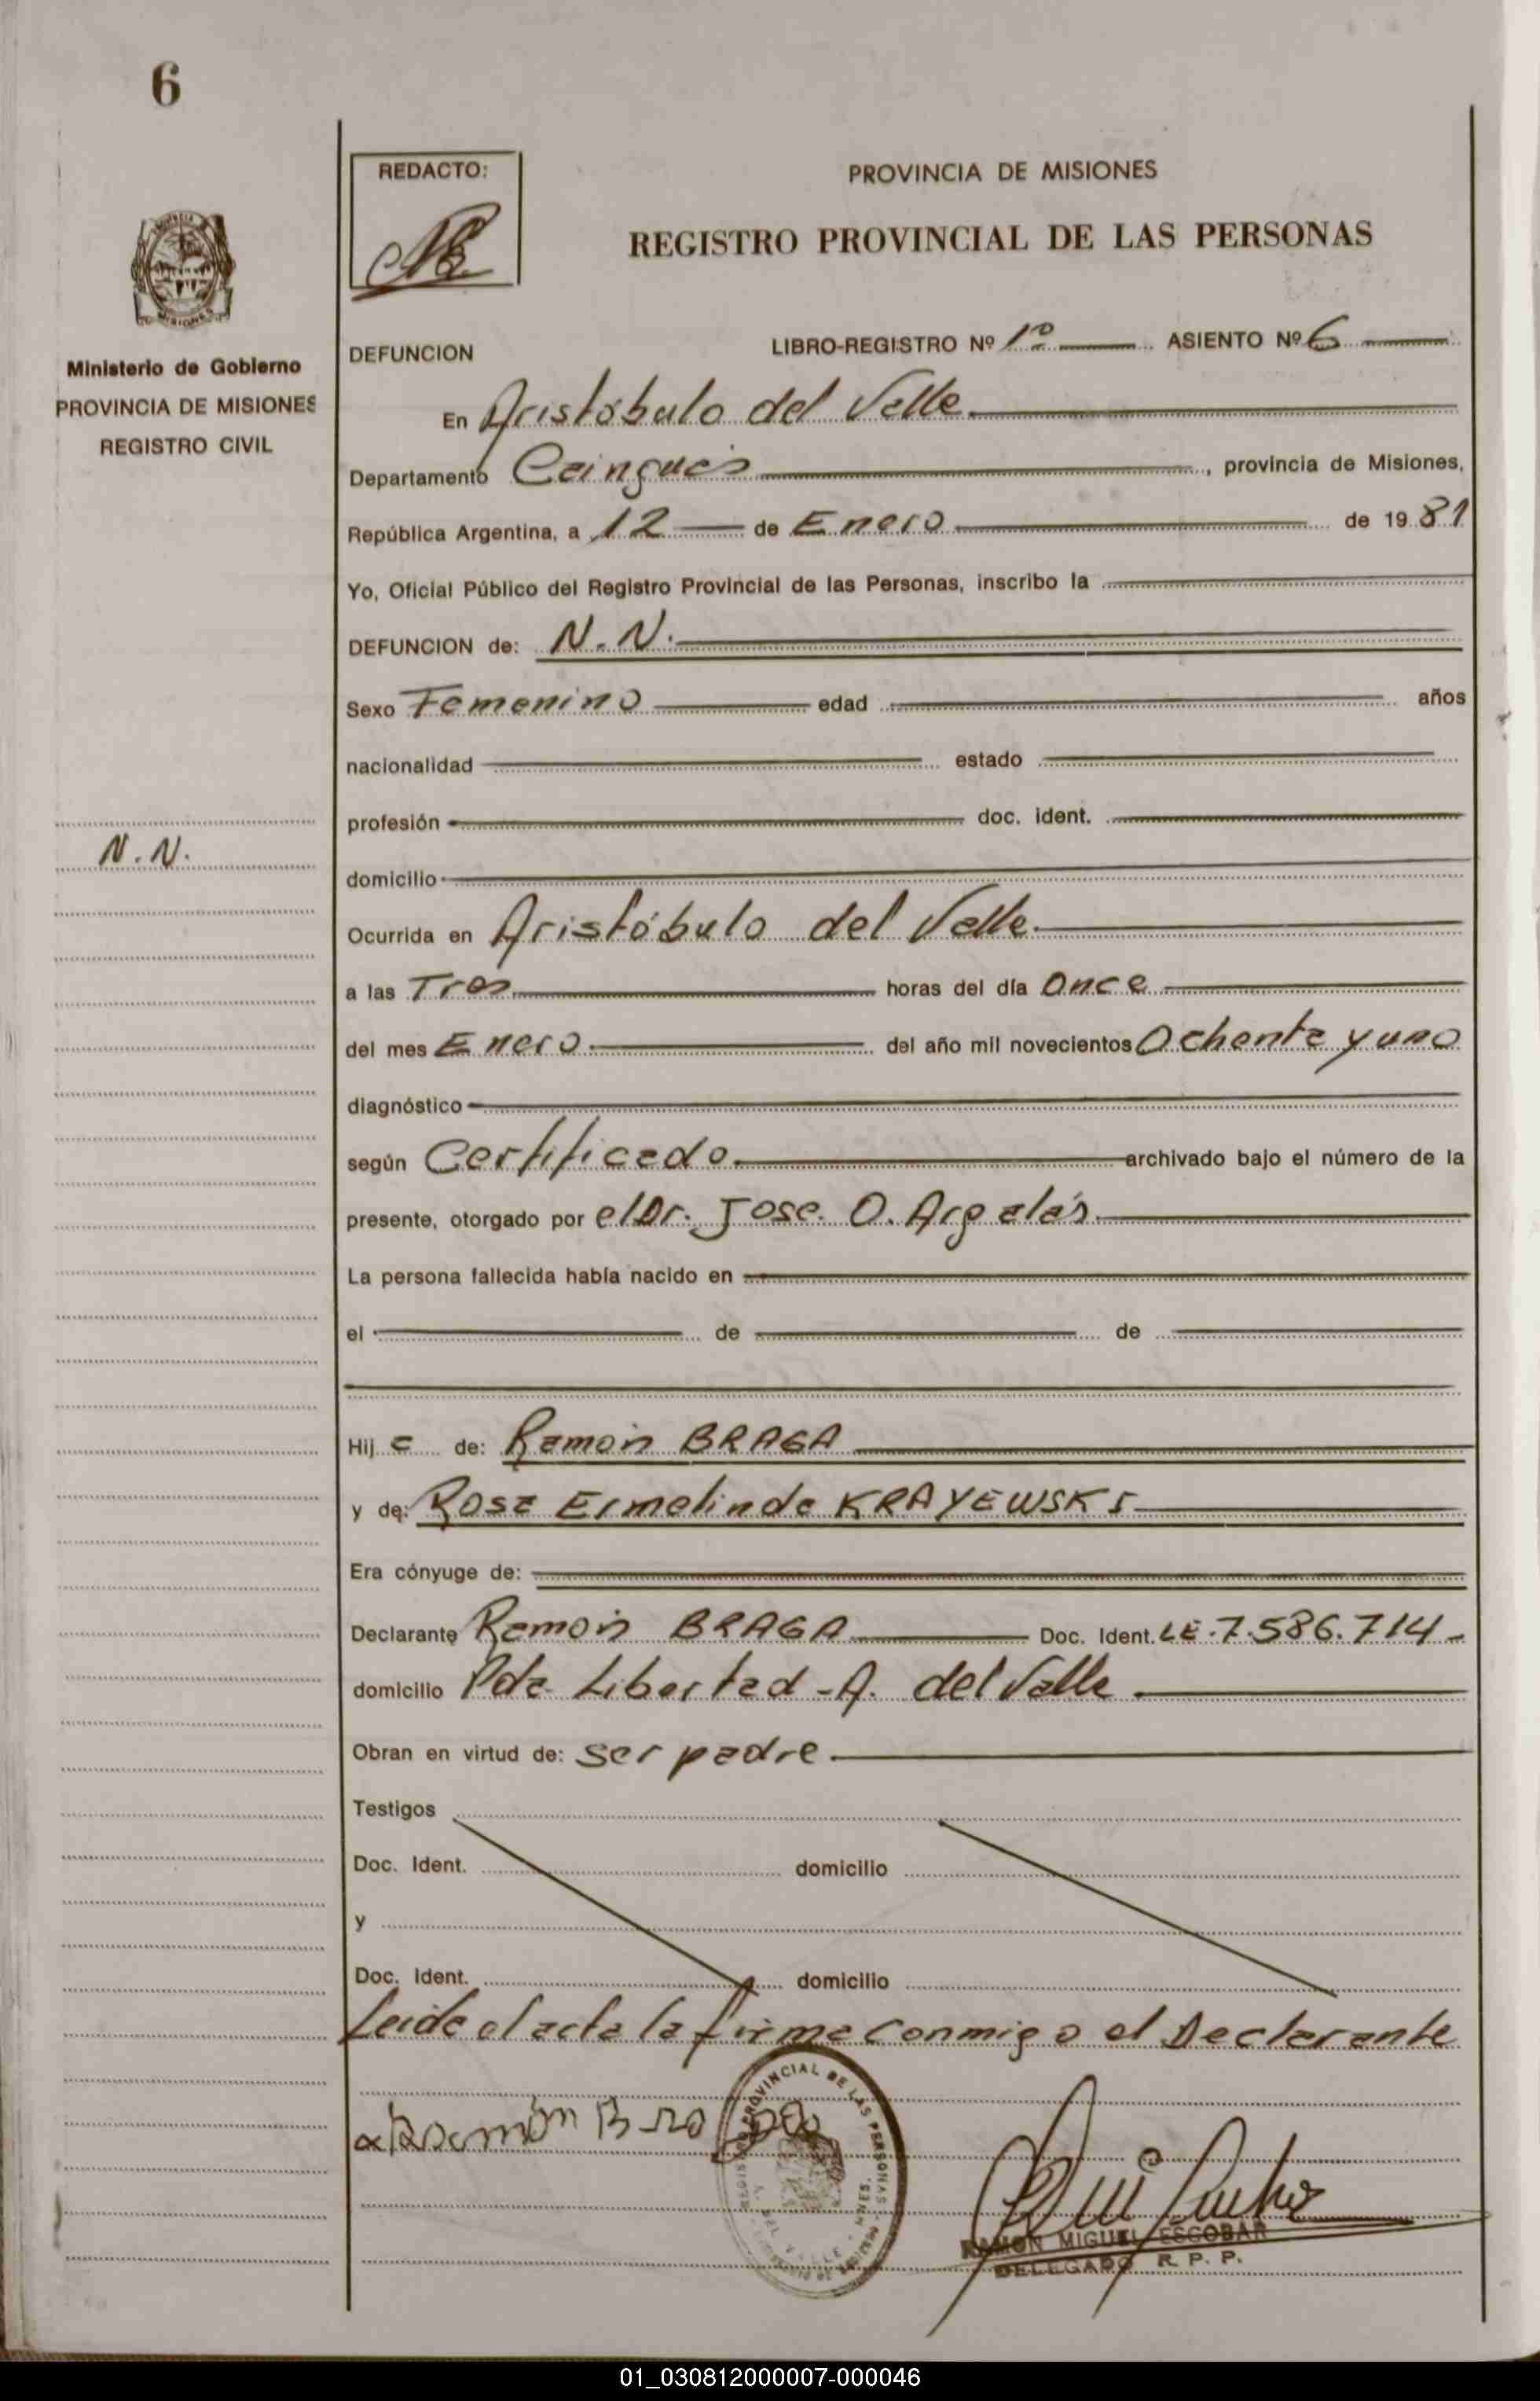 6
REDACTO:
PROVINCIA DE MISIONES
REGISTRO PROVINCIAL DE LAS PERSONAS
MISIONES
Ministerio de Gobierno
PROVINCIA DE MISIONES
REGISTRO CIVIL
DEFUNCION LIBRO-REGISTRO Nº 1º ASIENTO Nº 6
En Aristóbulo del Valle
Departamento Caingúas, provincia de Misiones,
República Argentina, a 12 de Enero de 1981
Yo, Oficial Público del Registro Provincial de las Personas, inscribo la
DEFUNCION de: N.N.
Sexo Femenino edad años
nacionalidad estado
profesión doc. ident.
N.N.
domicilio
Ocurrida en Aristóbulo del Valle
a las Tres horas del día Once
del mes Enero del año mil novecientos Ochenta y uno
diagnóstico
según Certificado archivado bajo el número de la
presente, otorgado por el Dr. Jose O. Argalás
La persona fallecida había nacido en
el de de
Hij a de: Ramón BRAGA
y de: Rosa Ermelinda KRAYEWSKI
Era cónyuge de:
Declarante Ramón BRAGA Doc. Ident. LE.7.586.714
domicilio Pda Libertad - A. del Valle
Obran en virtud de: ser padre
Testigos
Doc. Ident. domicilio
y
Doc. Ident. domicilio
Leida el acta la firma conmigo el Declarante
Ramón Braga
REGISTRO PROVINCIAL DE LAS PERSONAS
RAMON MIGUEL ESCOBAR
DELEGADO R. P. P.
01_030812000007-000046